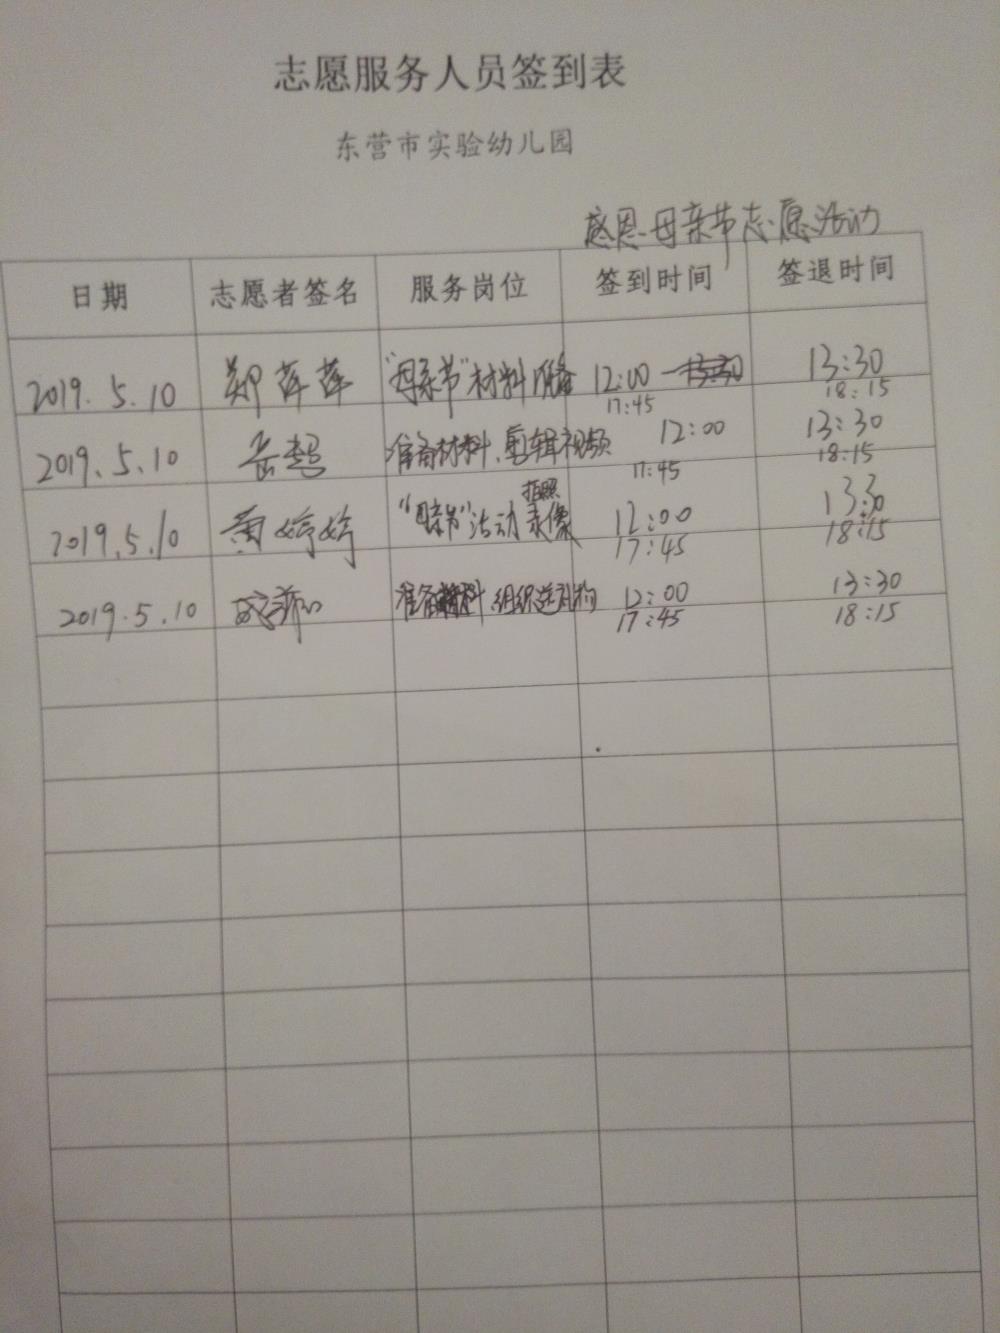 志愿服务人员签到表
东营市实验幼儿园
感恩母亲节志愿活动
日期 志愿者签名 服务岗位 签到时间 签退时间
2019.5.10 郑萍萍 "母亲节"材料准备 12:00 13:30
17:45 18:15
2019.5.10 岳超 准备材料、剪辑视频 12:00 13:30
17:45 18:15
拍照
2019.5.10 黄婷婷 "母亲节"活动录像 12:00 13:30
17:45 18:15
2019.5.10 准备材料、组织送礼物 12:00 13:30
17:45 18:15